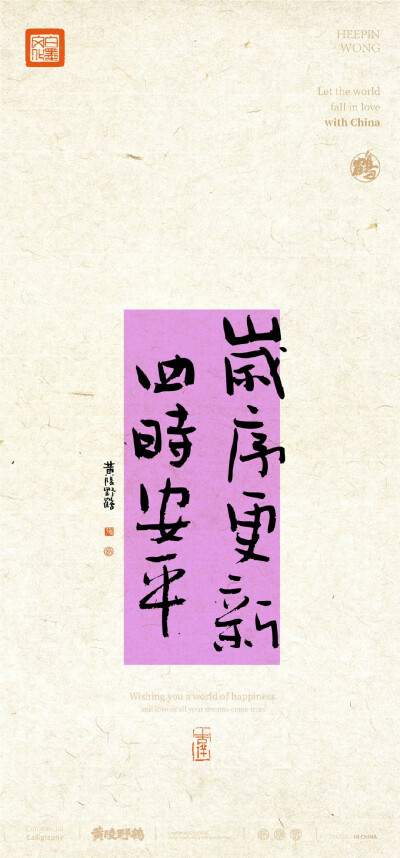 白墨文化
HEEPIN
WONG
Let the world
fall in love
with China
鹤
歲序更新
四時安平
黄陵野鹤
Wishing you a world of happiness
and love as all your dreams come true
吉祥
Commercial
Calligraphy
黄陵野鹤
IN CHINA